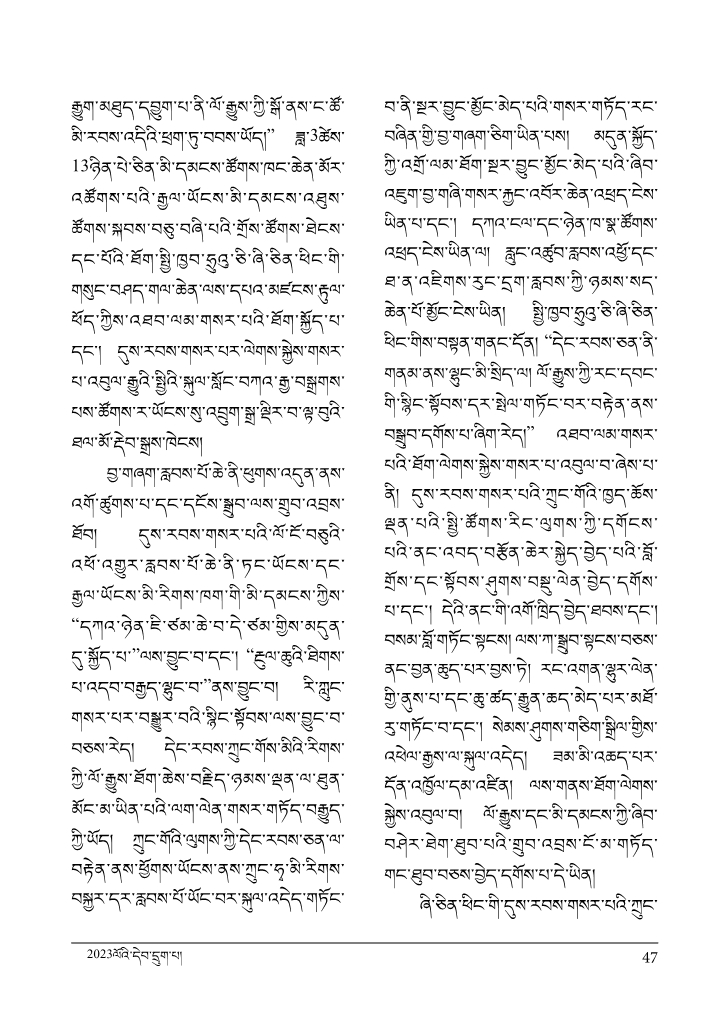 རྒྱུག་མཐུད་དབྱུག་པ་ནི་ལོ་རྒྱུས་ཀྱི་སྒོ་ནས་ང་ཚོ་
མི་རབས་འདིའི་ཕྲག་ཏུ་བབས་ཡོད།” ཟླ་3ཚེས་
13ཉིན་པེ་ཅིན་མི་དམངས་ཚོགས་ཁང་ཆེན་མོར་
འཚོགས་པའི་རྒྱལ་ཡོངས་མི་དམངས་འཐུས་
ཚོགས་སྐབས་བཅུ་བཞི་པའི་གྲོས་ཚོགས་ཐེངས་
དང་པོའི་ཐོག་སྤྱི་ཁྱབ་ཧྲུའུ་ཅི་ཞི་ཅིན་ཕིང་གི་
གསུང་བཤད་གལ་ཆེན་ལས་དཔའ་མཛངས་རྟུལ་
ཕོད་ཀྱིས་འཐབ་ལམ་གསར་པའི་ཐོག་སྐྱོད་པ་
དང་། དུས་རབས་གསར་པར་ལེགས་སྐྱེས་གསར་
པ་འབུལ་རྒྱུའི་སྤྱིའི་སྐུལ་སློང་བཀའ་རྒྱ་བསྒྲགས་
པས་ཚོགས་ར་ཡོངས་སུ་འབྲུག་སྒྲ་ལྡིར་བ་ལྟ་བུའི་
ཐལ་མོ་རྡེབ་སྒྲས་ཁེངས།
བྱ་གཞག་རླབས་པོ་ཆེ་ནི་ཕུགས་འདུན་ནས་
འགོ་ཚུགས་པ་དང་དངོས་སྒྲུབ་ལས་གྲུབ་འབྲས་
ཐོབ། དུས་རབས་གསར་པའི་ལོ་ངོ་བཅུའི་
འཕོ་འགྱུར་རླབས་པོ་ཆེ་ནི་ཏང་ཡོངས་དང་
རྒྱལ་ཡོངས་མི་རིགས་ཁག་གི་མི་དམངས་ཀྱིས་
“དཀའ་ཉེན་ཇི་ཙམ་ཆེ་བ་དེ་ཙམ་གྱིས་མདུན་
དུ་སྐྱོད་པ་”ལས་བྱུང་བ་དང་། “རྔུལ་ཆུའི་ཐིགས་
པ་འདབ་བརྒྱད་ལྷུང་བ་”ནས་བྱུང་བ། རི་ཀླུང་
གསར་པར་བསྒྱུར་བའི་སྙིང་སྟོབས་ལས་བྱུང་བ་
བཅས་རེད། དེང་རབས་ཀྲུང་གོས་མིའི་རིགས་
ཀྱི་ལོ་རྒྱུས་ཐོག་ཆེས་བརྗིད་ཉམས་ལྡན་ལ་ཐུན་
མོང་མ་ཡིན་པའི་ལག་ལེན་གསར་གཏོད་བརྒྱུད་
ཀྱི་ཡོད། ཀྲུང་གོའི་ལུགས་ཀྱི་དེང་རབས་ཅན་ལ་
བརྟེན་ནས་ཕྱོགས་ཡོངས་ནས་ཀྲུང་ཧྭ་མི་རིགས་
བསྐྱར་དར་རླབས་པོ་ཡོང་བར་སྐུལ་འདེད་གཏོང་
བ་ནི་སྔར་བྱུང་མྱོང་མེད་པའི་གསར་གཏོད་རང་
བཞིན་གྱི་བྱ་གཞག་ཅིག་ཡིན་པས། མདུན་སྐྱོད་
ཀྱི་འགྲོ་ལམ་ཐོག་སྔར་བྱུང་མྱོང་མེད་པའི་ཞིབ་
འཇུག་བྱ་གཞི་གསར་རྐྱང་འབོར་ཆེན་འཕྲད་ངེས་
ཡིན་པ་དང་། དཀའ་ངལ་དང་ཉེན་ཁ་སྣ་ཚོགས་
འཕྲད་ངེས་ཡིན་ལ། རླུང་འཚུབ་རླབས་འཕྱོ་དང་
ཐ་ན་འཇིགས་རུང་དྲག་རླབས་ཀྱི་ཉམས་སད་
ཆེན་པོ་མྱོང་ངེས་ཡིན། སྤྱི་ཁྱབ་ཧྲུའུ་ཅི་ཞི་ཅིན་
ཕིང་གིས་བསྟན་གནང་དོན། “དེང་རབས་ཅན་ནི་
གནམ་ནས་ལྷུང་མི་སྲིད་ལ། ལོ་རྒྱུས་ཀྱི་རང་དབང་
གི་སྙིང་སྟོབས་དར་སྤེལ་གཏོང་བར་བརྟེན་ནས་
བསྒྲུབ་དགོས་པ་ཞིག་རེད།” འཐབ་ལམ་གསར་
པའི་ཐོག་ལེགས་སྐྱེས་གསར་པ་འབུལ་བ་ཞེས་པ་
ནི། དུས་རབས་གསར་པའི་ཀྲུང་གོའི་ཁྱད་ཆོས་
ལྡན་པའི་སྤྱི་ཚོགས་རིང་ལུགས་ཀྱི་དགོངས་
པའི་ནང་འབད་བརྩོན་ཆེར་སྐྱེད་བྱེད་པའི་བློ་
གྲོས་དང་སྟོབས་ཤུགས་བསྡུ་ལེན་བྱེད་དགོས་
པ་དང་། དེའི་ནང་གི་འགོ་ཁྲིད་བྱེད་ཐབས་དང་།
བསམ་བློ་གཏོང་སྟངས། ལས་ཀ་སྒྲུབ་སྟངས་བཅས་
ནང་བྱན་ཆུད་པར་བྱས་ཏེ། རང་འགན་ལྷུར་ལེན་
གྱི་ནུས་པ་དང་ཆུ་ཚད་རྒྱུན་ཆད་མེད་པར་མཐོ་
རུ་གཏོང་བ་དང་། སེམས་ཤུགས་གཅིག་སྒྲིལ་གྱིས་
འཕེལ་རྒྱས་ལ་སྐུལ་འདེད། ཟམ་མི་འཆད་པར་
དོན་འཁྱོལ་དམ་འཛིན། ལས་གནས་ཐོག་ལེགས་
སྐྱེས་འབུལ་བ། ལོ་རྒྱུས་དང་མི་དམངས་ཀྱི་ཞིབ་
བཤེར་ཐེག་ཐུབ་པའི་གྲུབ་འབྲས་ངོ་མ་གཏོད་
གང་ཐུབ་བཅས་བྱེད་དགོས་པ་དེ་ཡིན།
ཞི་ཅིན་ཕིང་གི་དུས་རབས་གསར་པའི་ཀྲུང་
2023ལོའི་དེབ་དྲུག་པ།
47